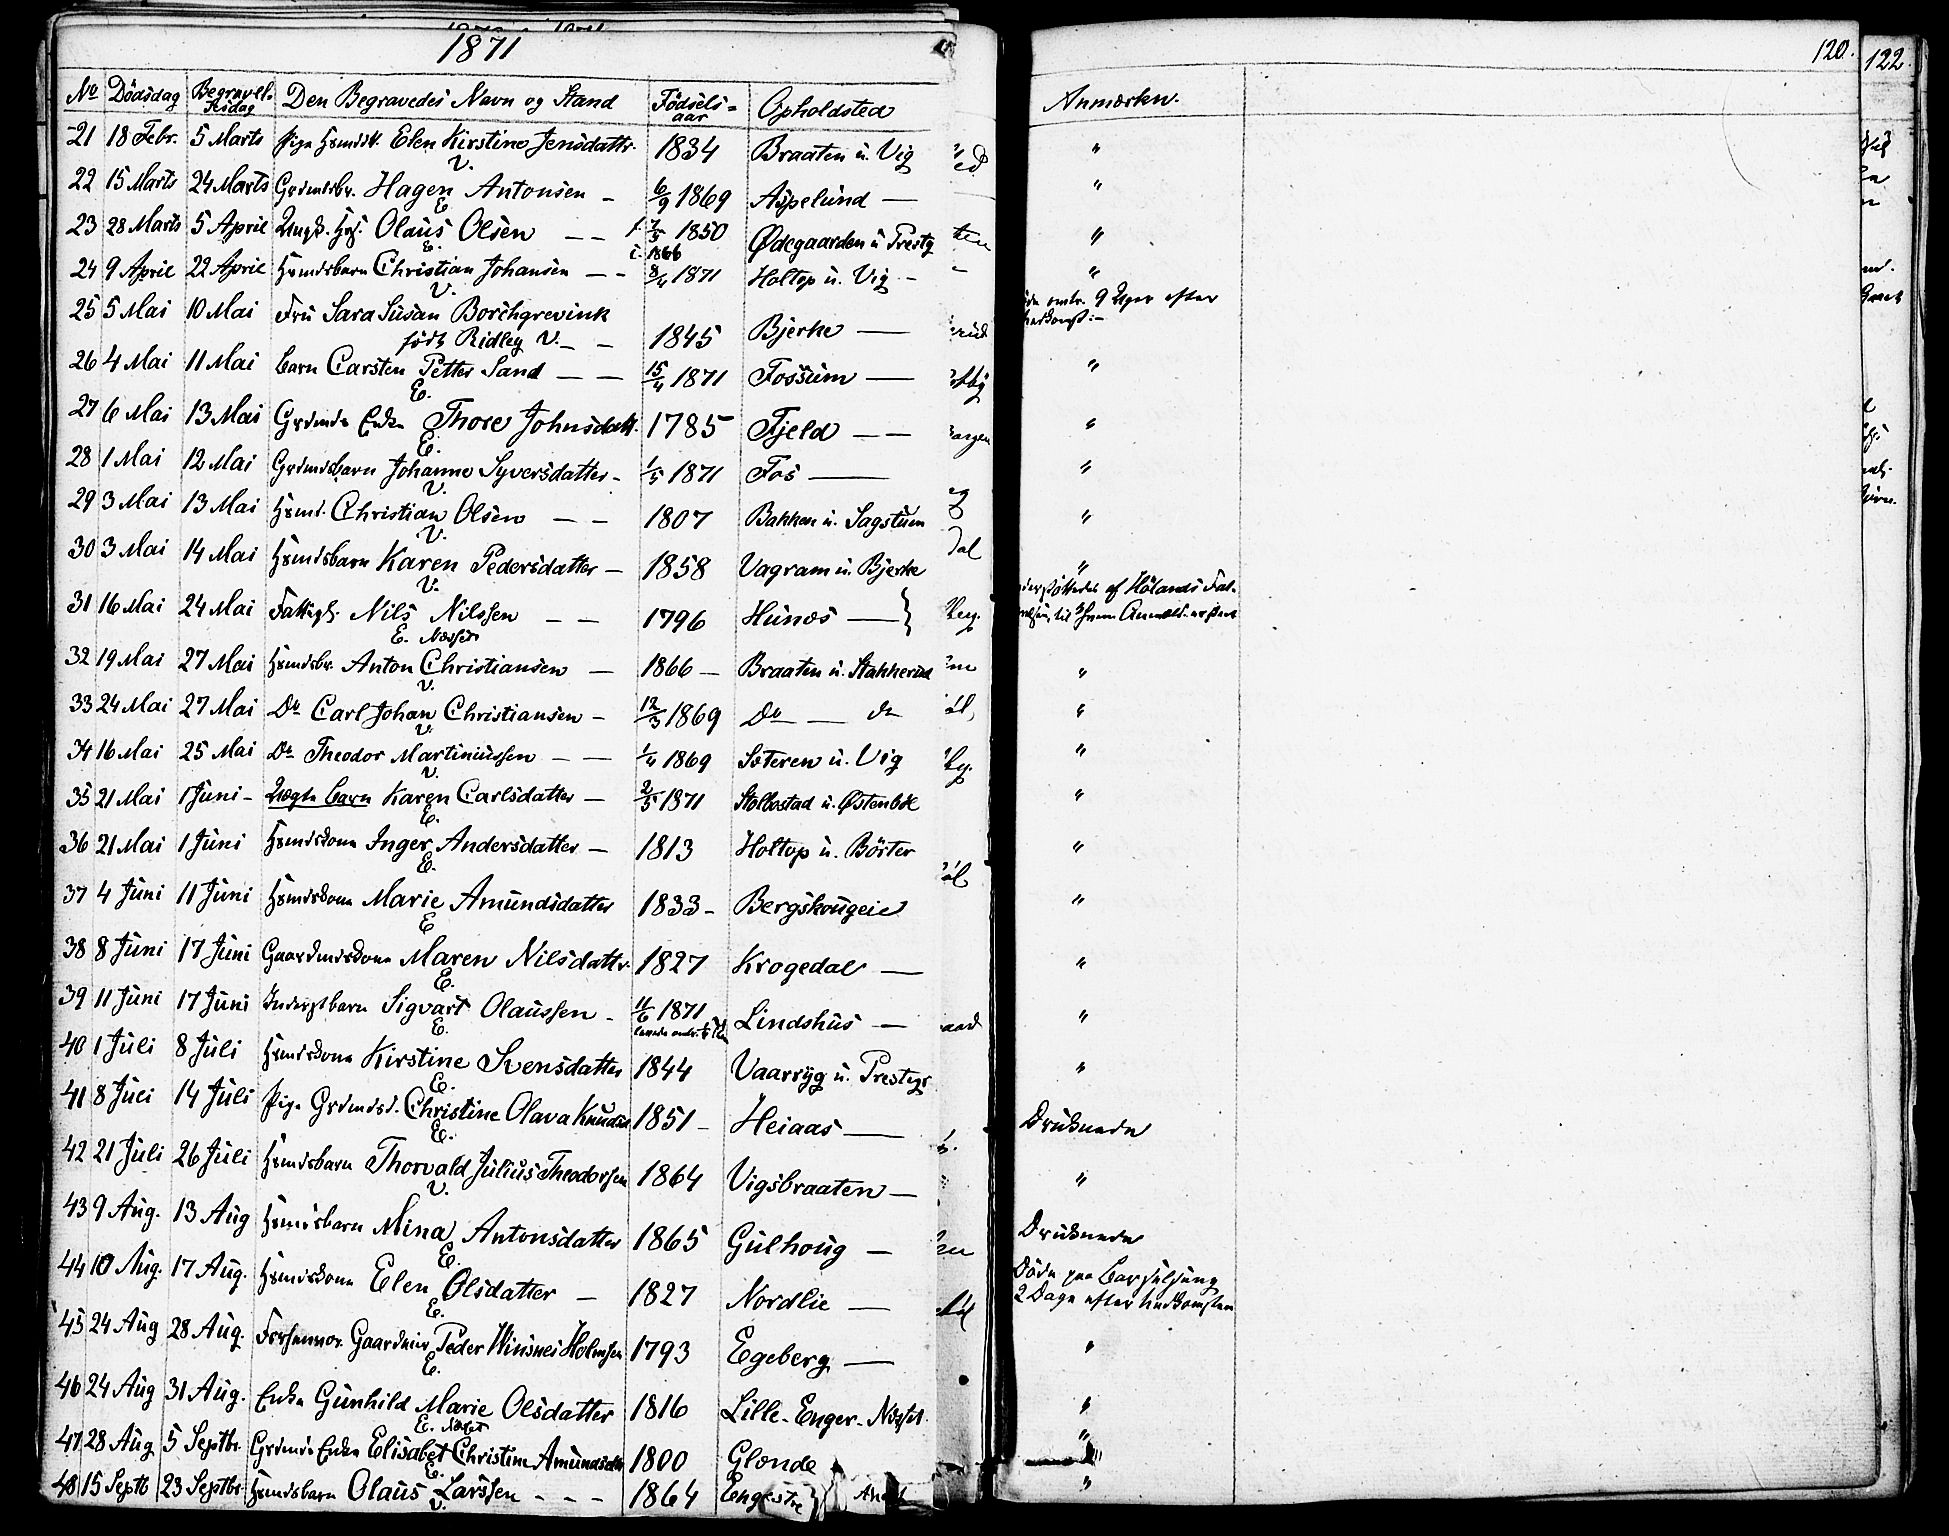 1871
120.
122.
No Dödsdag Begravelsesdag Den Begravedes Navn og Stand Födselsaar Opholdsted Anmærkn.
21 18 Febr. 5 Marts Pige Elen Kirstine Jensdattr. V. 1834 Braaten u. Vig "
22 15 Marts 24 Marts Grdmdsbr. Hagen Antonsen E. 6/9 1869 Aspelund "
23 28 Marts 5 April Ungk. Olaus Olsen E. f. 7/5 1850 c. 1866 Ødegaarden u Prestg "
24 9 April 22 April Hsmdsbarn Christian Johansen V. 8/4 1871 Holtop u. Vig "
25 5 Mai 10 Mai Fru Sara Susan Borchgrevink
födt Ridley V. 1845 Bjerke omtr. 9 Uger efter
26 4 Mai 11 Mai barn Carsten Petter Sand E. 15/4 1871 Fossum "
27 6 Mai 13 Mai Grdmds Enke Thore Johnsdatt. E. 1785 Fjeld "
28 1 Mai 12 Mai Grdmdsbarn Johanne Syversdatter V. 1/5 1871 Fos "
29 3 Mai 13 Mai Hsmd. Christian Olsen V. 1807 Bakken u. Sagstuen "
30 3 Mai 14 Mai Hsmdsbarn Karen Pedersdatter V. 1858 Vagram u. Bjerke "
31 16 Mai 24 Mai Fattigl. Nils Nilssen E. Næsset 1796 Hunæs af Hölands
32 19 Mai 27 Mai Hsmdsbr. Anton Christiansen V. 1866 Braaten u. Stakkerud "
33 24 Mai 27 Mai Do Carl Johan Christiansen V. 12/3 1869 Do do "
34 16 Mai 25 Mai Do Theodor Martiniussen V. 1/4 1869 Sæteren u. Vig "
35 21 Mai 1 Juni Uægte barn Karen Carlsdatter E. 2/5 1871 Stolbostad u. Østenböl "
36 21 Mai 1 Juni Hsmdskone Inger Andersdatter E. 1813 Holtop u. Börter "
37 4 Juni 11 Juni Hsmdskone Marie Amundsdatter E 1833 Bergskougeie "
38 8 Juni 17 Juni Gaardmdskone Maren Nilsdattr. E. 1827 Krogedal "
39 11 Juni 17 Juni Inderstbarn Sigvart Olaussen E. 11/6 1871 Lindshus "
40 1 Juli 8 Juli Hsmdskone Kirstine Svensdatter E. 1844 Vaarryg u. Prestgr "
41 8 Juli 14 Juli Pige Grdmdsd. Christine Olava Knudsd E. 1851 Heiaas Druknede
42 21 Juli 26 Juli Hsmdsbarn Thorvald Julius Theodorsen V. 1864 Vigsbraaten "
43 9 Aug. 13 Aug Hsmdsbarn Mina Antonsdatter E. 1865 Gulhoug Druknede
44 10 Aug. 17 Aug. Hsmdskone Elen Olsdatter E. 1827 Nordlie Döde paa Barselseng
2 Dage efter Nedkomsten
45 24 Aug 28 Aug. Gaardmd Peder Winsnes Holmsen E. 1793 Egeberg "
46 24 Aug 31 Aug. Enke Gunhild Marie Olsdatter E. Næset 1816 Lille-Enger "
47 28 Aug 5 Septbr. Grdmds Enke Elisabet Christine Amundsdtr E. 1800 Glonde "
48 15 Septb 23 Septbr. Hsmdsbarn Olaus Larssen V. 1864 "